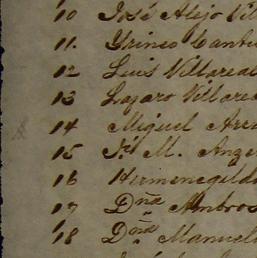 10 José Alejo Vil
11. Yrineo Cantu
12 Luis Villareal
13 Lazaro Villarea
14 Miguel Arr
15 M. Ange
16 Hermenegild
17 Dña Ambros
18 Dña Manuel